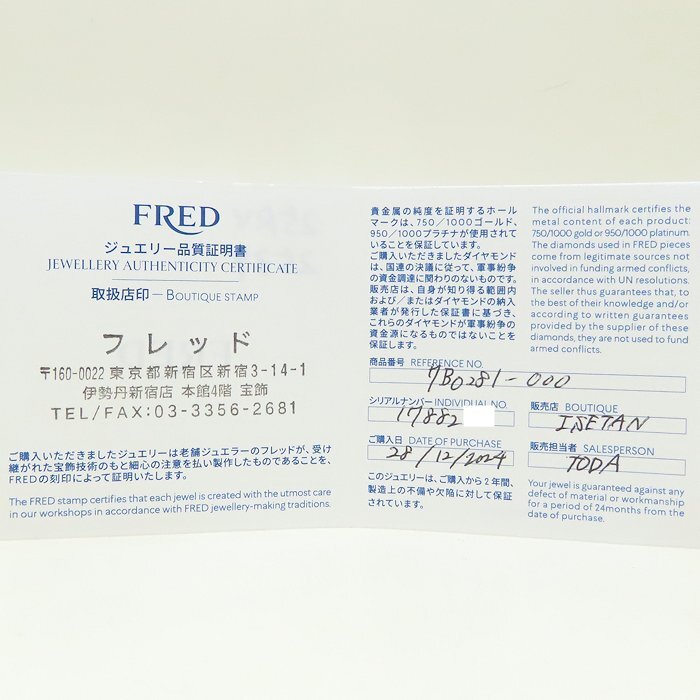 FRED
ジュエリー品質証明書
JEWELLERY AUTHENTICITY CERTIFICATE
取扱店印 — BOUTIQUE STAMP
フレッド
〒160-0022 東京都新宿区新宿3-14-1
伊勢丹新宿店 本館4階 宝飾
TEL/FAX:03-3356-2681
ご購入いただきましたジュエリーは老舗ジュエラーのフレッドが、受け
継がれた宝飾技術のもと細心の注意を払い製作したものであることを、
FREDの刻印によって証明いたします。
The FRED stamp certifies that each jewel is created with the utmost care
in our workshops in accordance with FRED jewellery-making traditions.
貴金属の純度を証明するホール
マークは、750/1000ゴールド、
950/1000プラチナが使用されて
いることを保証しています。
ご購入いただきましたダイヤモンド
は、国連の決議に従って、軍事紛争
の資金調達に関わりのないものです。
販売店は、自身が知り得る範囲内
および/またはダイヤモンドの納入
業者が発行した保証書に基づき、
これらのダイヤモンドが軍事紛争の
資金源になるものではないことを
保証します。
The official hallmark certifies the
metal content of each product:
750/1000 gold or 950/1000 platinum.
The diamonds used in FRED pieces
come from legitimate sources not
involved in funding armed conflicts,
in accordance with UN resolutions.
The seller thus guarantees that, to
the best of their knowledge and/or
according to written guarantees
provided by the supplier of these
diamonds, they are not used to fund
armed conflicts.
商品番号 REFERENCE NO.
7B0281-000
シリアルナンバー INDIVIDUAL NO.
17882
販売店 BOUTIQUE
ISETAN
ご購入日 DATE OF PURCHASE
28/12/2024
販売担当者 SALESPERSON
TODA
このジュエリーは、ご購入から2年間、
製造上の不備や欠陥に対して保証
されています。
Your jewel is guaranteed against any
defect of material or workmanship
for a period of 24months from the
date of purchase.